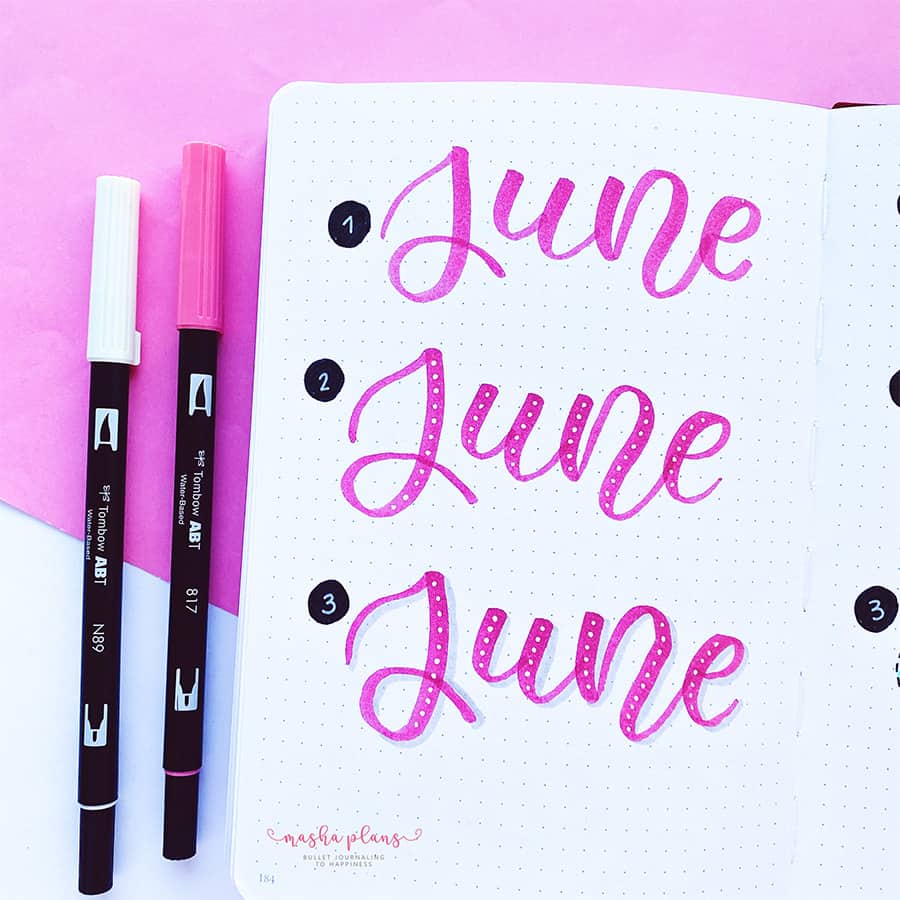 1 June
2 June
3 June
3
Tombow ABT
Water-Based
N89
Tombow ABT
Water-Based
817
masha plans
BULLET JOURNALING
TO HAPPINESS
184